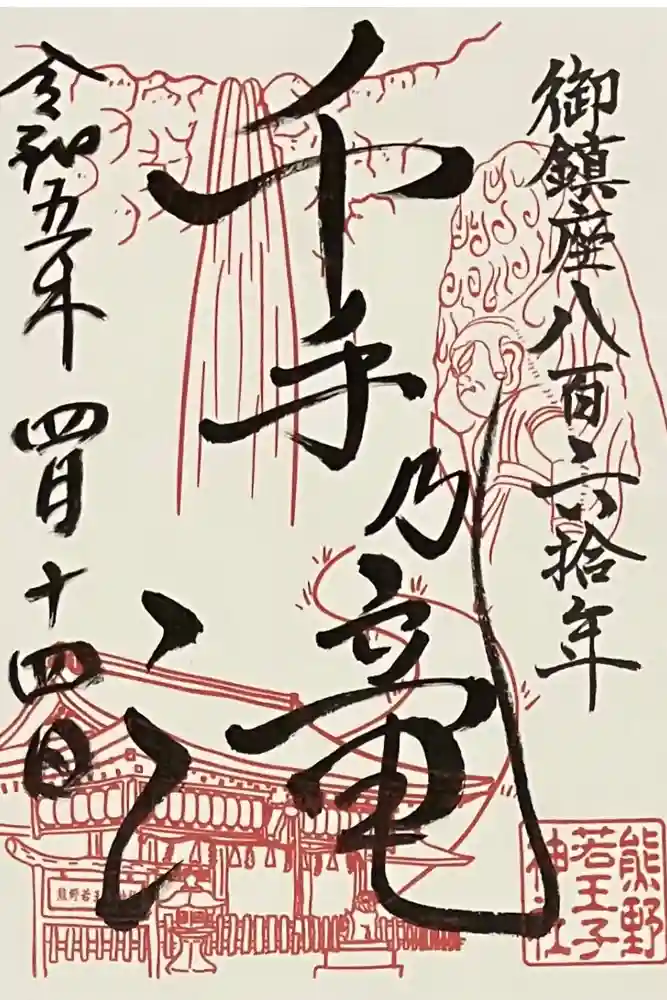 御鎮座八百六拾年
千手乃滝
令和五年四月十四日
熊野
若王子
神社